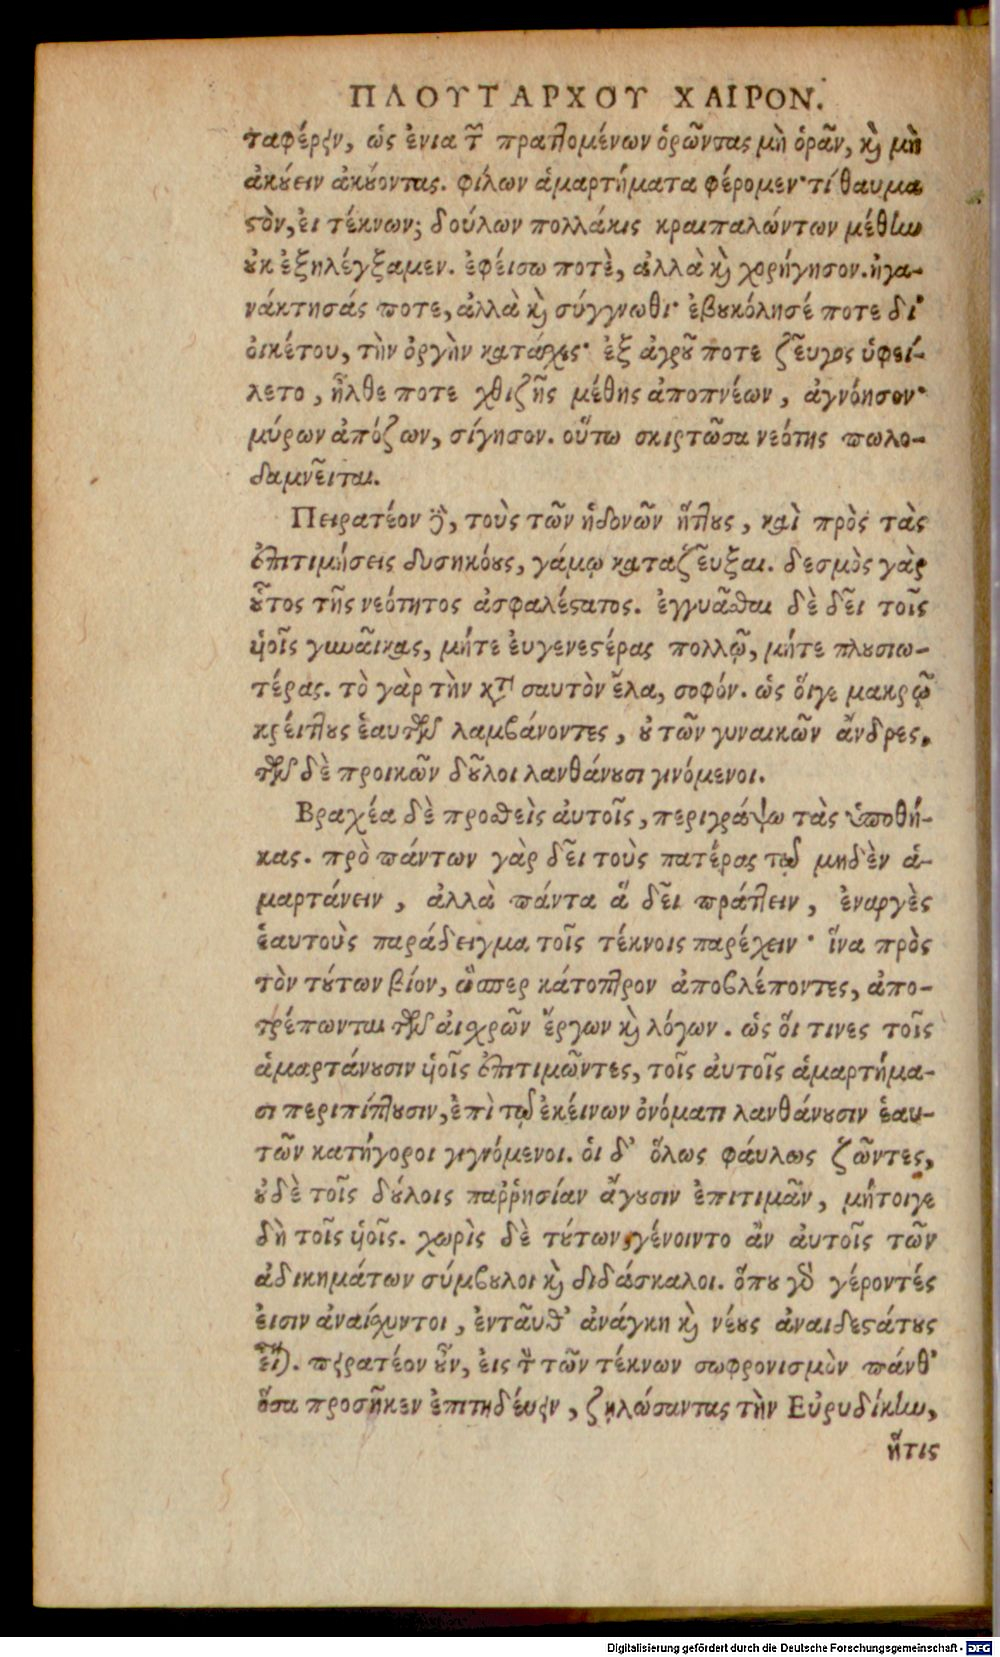 ΠΛΟΥΤΑΡΧΟΥ ΧΑΙΡΟΝ.
ταφέρειν, ὡς ἔνια τῶν πραττομένων ὁρῶντας μὴ ὁρᾶν, καὶ μὴ
ἀκούειν ἀκούοντας. φίλων ἁμαρτήματα φέρομεν· τί θαυμα
στὸν, εἰ τέκνων; δούλων πολλάκις κραιπαλώντων μέθην
οὐκ ἐξηλέγξαμεν. ἐφείσω ποτὲ, ἀλλὰ καὶ χορήγησον. ἠγα-
νάκτησάς ποτε, ἀλλὰ καὶ σύγγνωθι· ἐβουκόλησέ ποτε δι'
οἰκέτου, τὴν ὀργὴν κατάσχες· ἐξ ἀγροῦ ποτε ζεῦγος ὑφεί-
λετο, ἦλθε ποτε χθιζῆς μέθης ἀποπνέων, ἀγνόησον·
μύρων ἀπόζων, σίγησον. οὕτω σκιρτῶσα νεότης πωλο-
δαμνεῖται.
Πειρατέον δὲ, τοὺς τῶν ἡδονῶν ἥττους, καὶ πρὸς τὰς
ἐπιτιμήσεις δυσηκόους, γάμῳ καταζεῦξαι. δεσμὸς γὰρ
οὗτος τῆς νεότητος ἀσφαλέστατος. ἐγγυᾶσθαι δὲ δεῖ τοῖς
υἱοῖς γυναῖκας, μήτε εὐγενεστέρας πολλῷ, μήτε πλουσιω-
τέρας. τὸ γὰρ τὴν κατὰ σαυτὸν ἔλα, σοφόν. ὡς ὅιγε μακρῷ
κρείττους ἑαυτῶν λαμβάνοντες, οὐ τῶν γυναικῶν ἄνδρες,
τῶν δὲ προικῶν δοῦλοι λανθάνουσι γινόμενοι.
Βραχέα δὲ προσθεὶς αὐτοῖς, περιγράψω τὰς ὑποθή-
κας. πρὸ πάντων γὰρ δεῖ τοὺς πατέρας τῷ μηδὲν ἁ-
μαρτάνειν, ἀλλὰ πάντα ἃ δεῖ πράττειν, ἐναργὲς
ἑαυτοὺς παράδειγμα τοῖς τέκνοις παρέχειν· ἵνα πρὸς
τὸν τούτων βίον, ὥσπερ κάτοπτρον ἀποβλέποντες, ἀπο-
τρέπωνται τῶν αἰσχρῶν ἔργων καὶ λόγων. ὡς οἵ τινες τοῖς
ἁμαρτάνουσιν υἱοῖς ἐπιτιμῶντες, τοῖς αὐτοῖς ἁμαρτήμα-
σι περιπίπτουσιν, ἐπὶ τῷ ἐκείνων ὀνόματι λανθάνουσιν ἑαυ-
τῶν κατήγοροι γιγνόμενοι. οἱ δ' ὅλως φάυλως ζῶντες,
οὐδὲ τοῖς δούλοις παῤῥησίαν ἄγουσιν ἐπιτιμᾶν, μήτοιγε
δὴ τοῖς υἱοῖς. χωρὶς δὲ τούτων, γένοιντο ἂν αὐτοῖς τῶν
ἀδικημάτων σύμβουλοι καὶ διδάσκαλοι. ὅπου γὰρ γέροντές
εἰσιν ἀναίσχυντοι, ἐνταῦθ' ἀνάγκη καὶ νέους ἀναιδεστάτους
εἶναι. πειρατέον οὖν, εἰς τὸν τῶν τέκνων σωφρονισμὸν πάνθ'
ὅσα προσῆκεν ἐπιτηδεύειν, ζηλώσαντας τὴν Εὐρυδίκην,
ἥτις
Digitalisierung gefördert durch die Deutsche Forschungsgemeinschaft - DFG